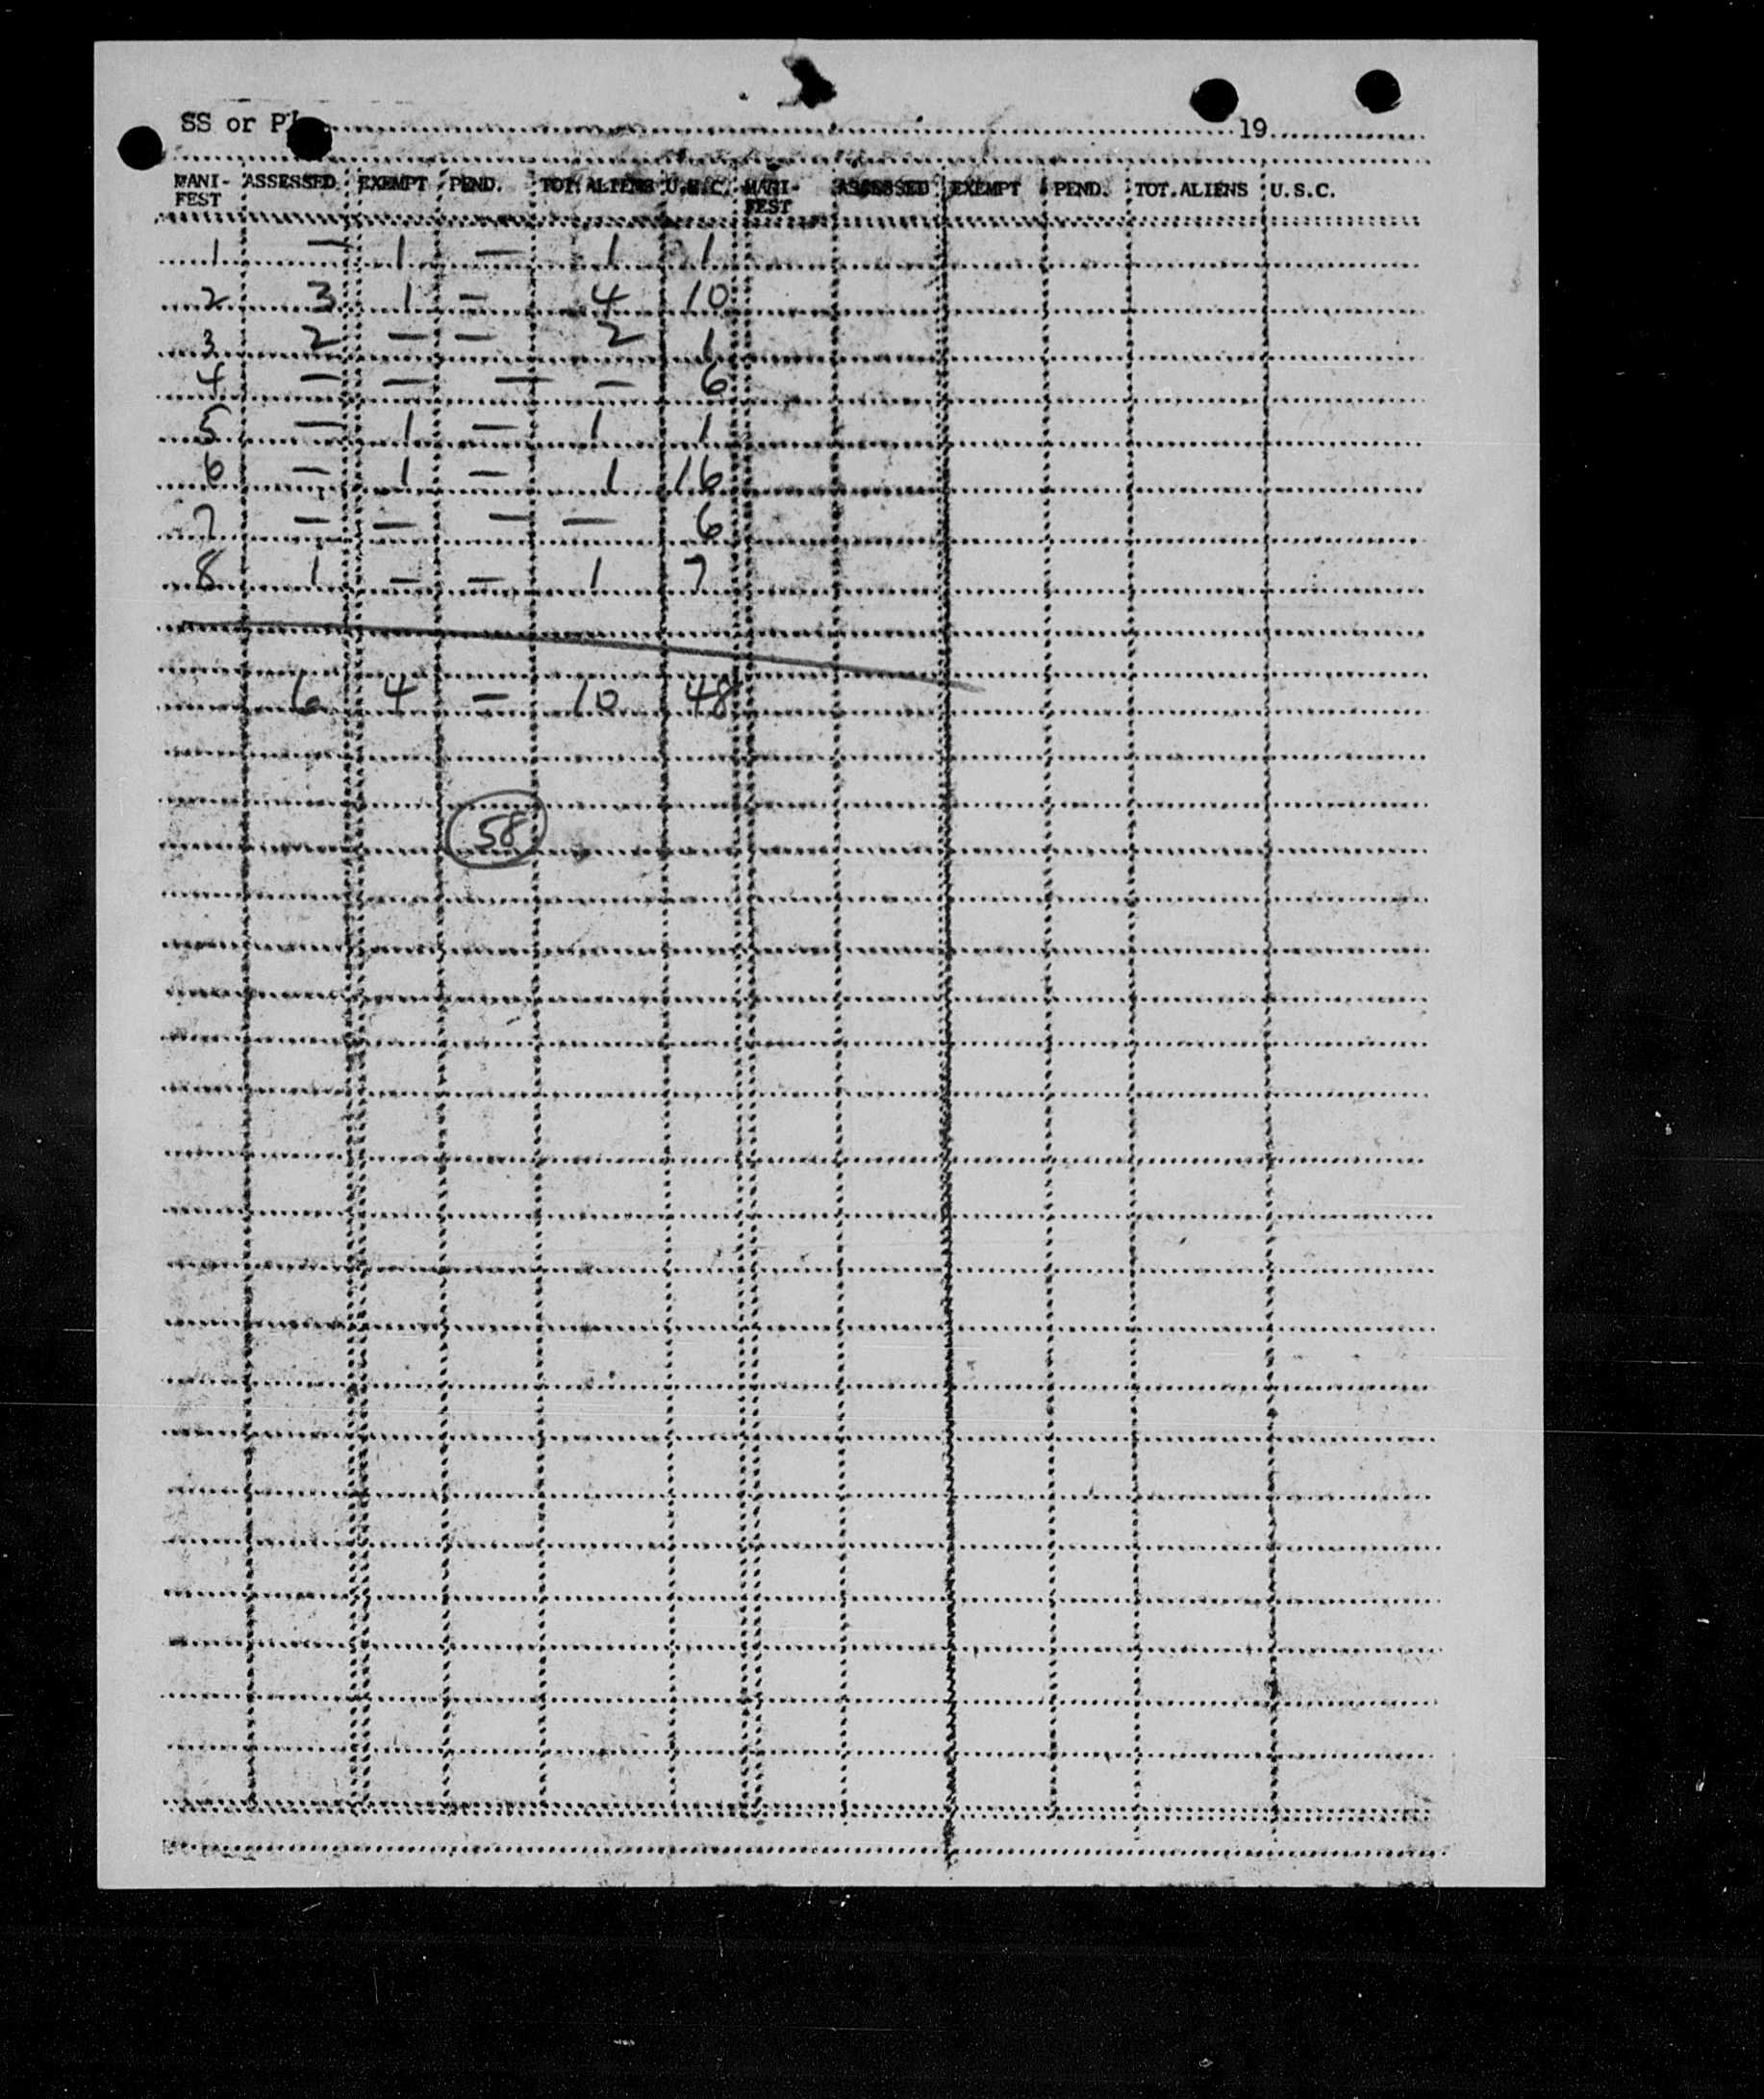 SS or Pl 19
MANI-FEST ASSESSED EXEMPT PEND. TOT. ALIENS U.S.C. MANI-FEST ASSESSED EXEMPT PEND. TOT. ALIENS U.S.C.
1 — 1 — 1 1
2 3 1 — 4 10
3 2 — — 2 1
4 — — — — 6
5 — 1 — 1 1
6 — 1 — 1 16
7 — — — — 6
8 1 — — 1 7
6 4 — 10 48
58